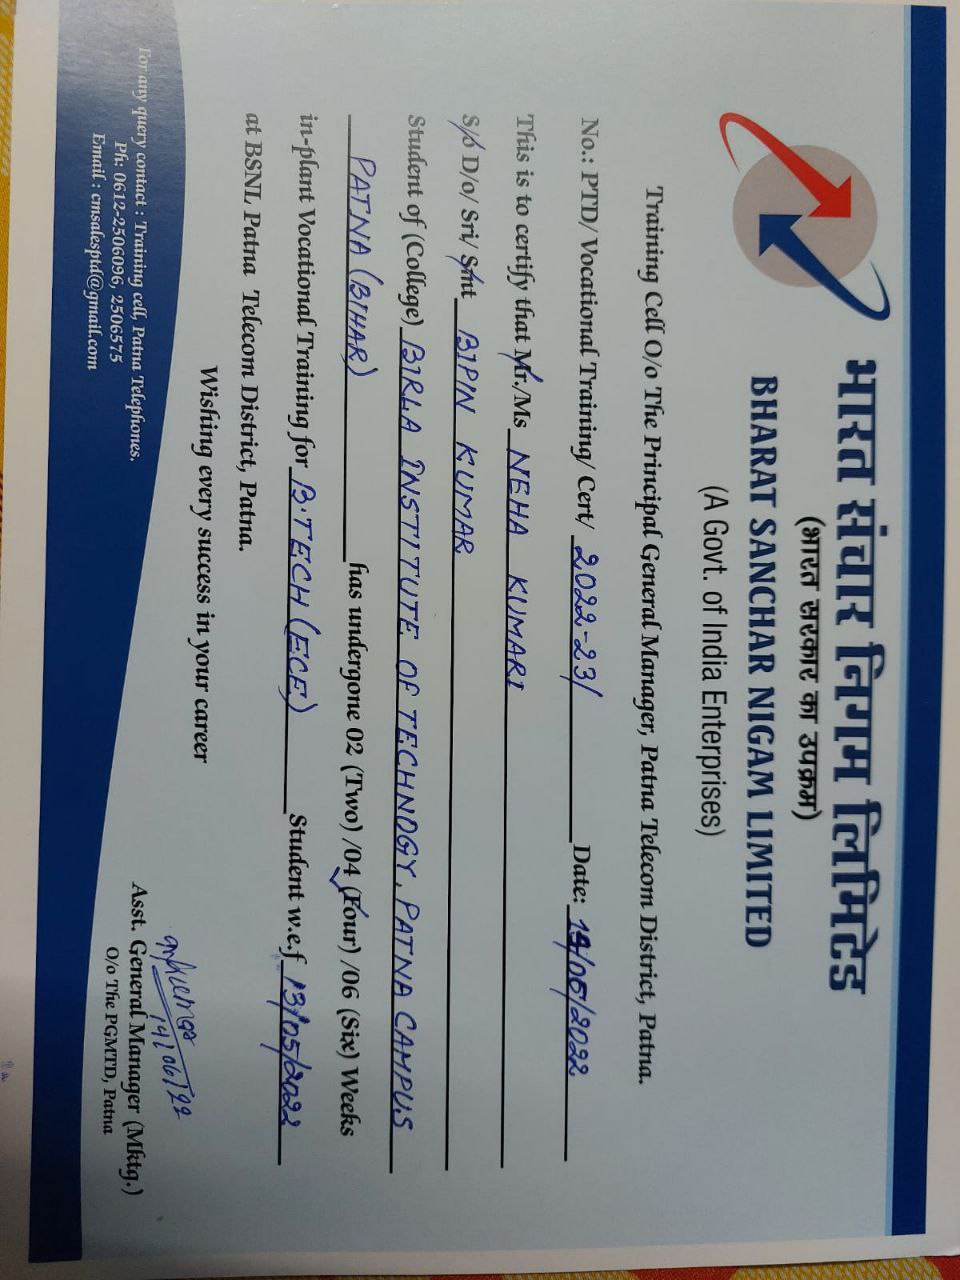 भारत संचार निगम लिमिटेड
(भारत सरकार का उपक्रम)
BHARAT SANCHAR NIGAM LIMITED
(A Govt. of India Enterprises)
Training Cell O/o The Principal General Manager, Patna Telecom District, Patna.
No.: PTD/ Vocational Training/ Cert/ 2022-23/ Date: 15/06/2022
This is to certify that Mr./Ms NEHA KUMARI
S/o D/o/ Sri/ Smt BIPIN KUMAR
Student of (College) BIRLA INSTITUTE OF TECHNOGY, PATNA CAMPUS
PATNA (BIHAR) has undergone 02 (Two) /04 (Four) /06 (Six) Weeks
in-plant Vocational Training for B.TECH (ECE) Student w.e.f 13/05/2022
at BSNL Patna Telecom District, Patna.
Wishing every success in your career
14/06/22
Asst. General Manager (Mktg.)
O/o The PGMTD, Patna
For any query contact : Training cell, Patna Telephones.
Ph: 0612-2506096, 2506575
Email : cmsalesptd@gmail.com